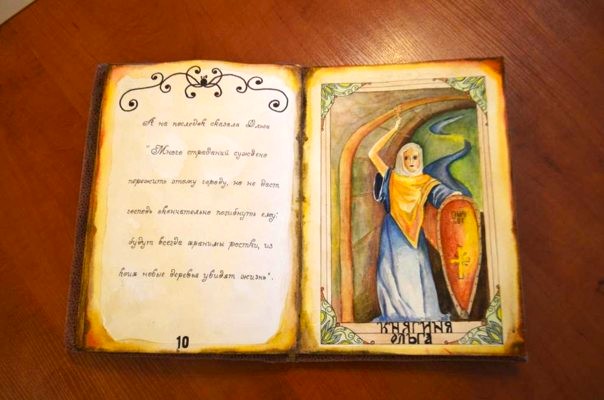 А на последок сказала Ольга
"Много страданий суждено
пережить этому городу, но не даст
господь окончательно погибнуть ему:
будут всегда хранимы ростки, из
коих новые деревья увидят жизнь".
10
КНЯГИНЯ
ОЛЬГА